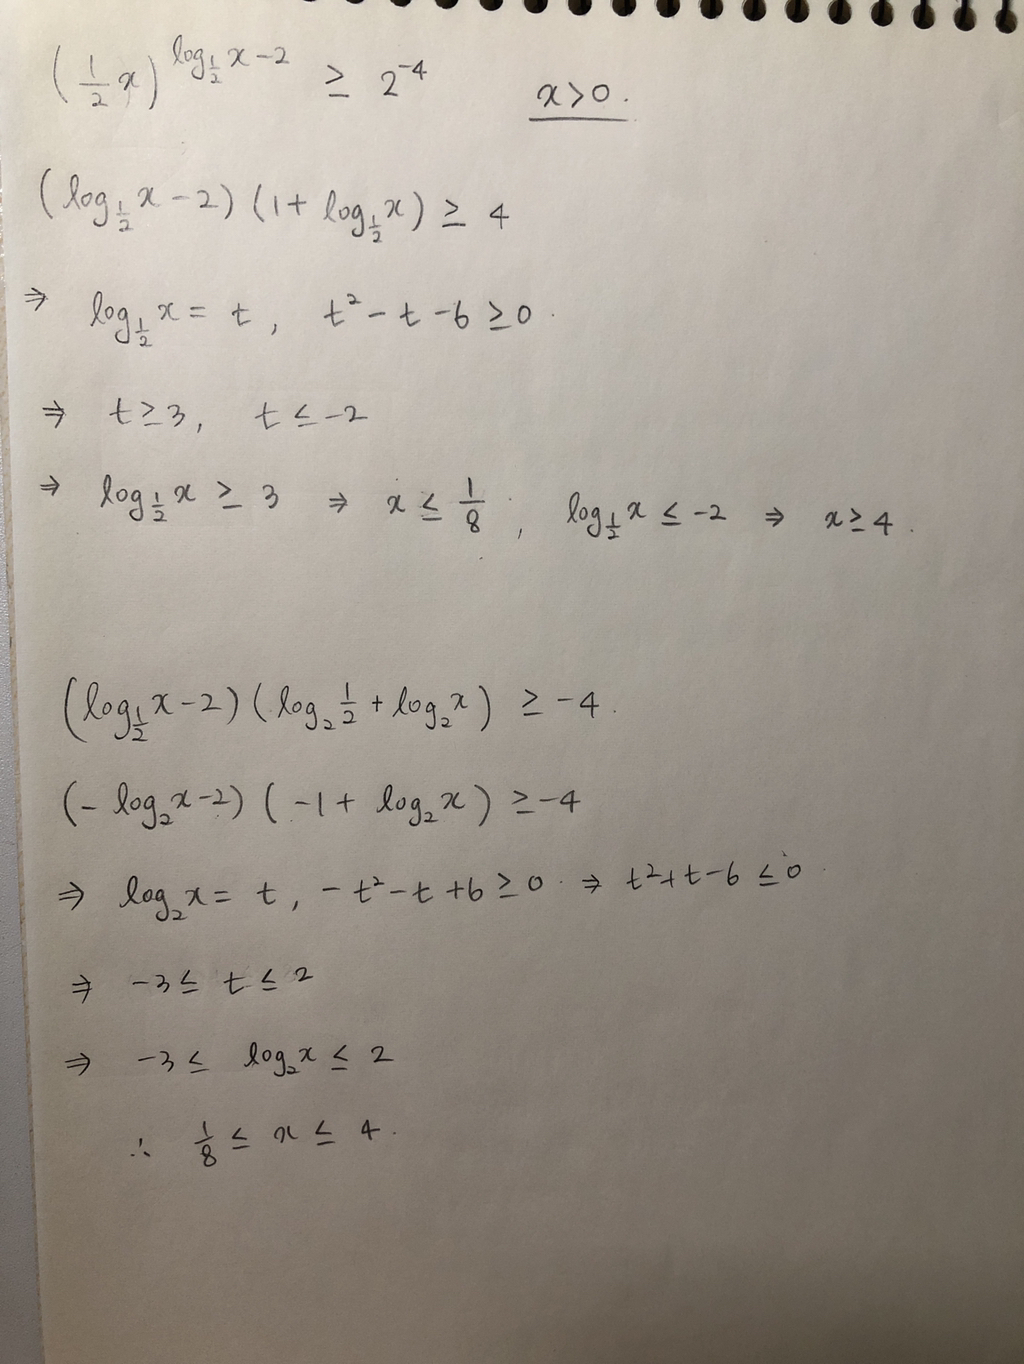 (1/2 x)^(log_(1/2) x - 2) ≥ 2^(-4)   x > 0.
(log_(1/2) x - 2)(1 + log_(1/2) x) ≥ 4
⇒ log_(1/2) x = t, t² - t - 6 ≥ 0.
⇒ t ≥ 3, t ≤ -2
⇒ log_(1/2) x ≥ 3 ⇒ x ≤ 1/8, log_(1/2) x ≤ -2 ⇒ x ≥ 4.
(log_(1/2) x - 2)(log_2 1/2 + log_2 x) ≥ -4.
(- log_2 x - 2)(-1 + log_2 x) ≥ -4
⇒ log_2 x = t, -t² - t + 6 ≥ 0. ⇒ t² + t - 6 ≤ 0.
⇒ -3 ≤ t ≤ 2
⇒ -3 ≤ log_2 x ≤ 2
∴ 1/8 ≤ x ≤ 4.